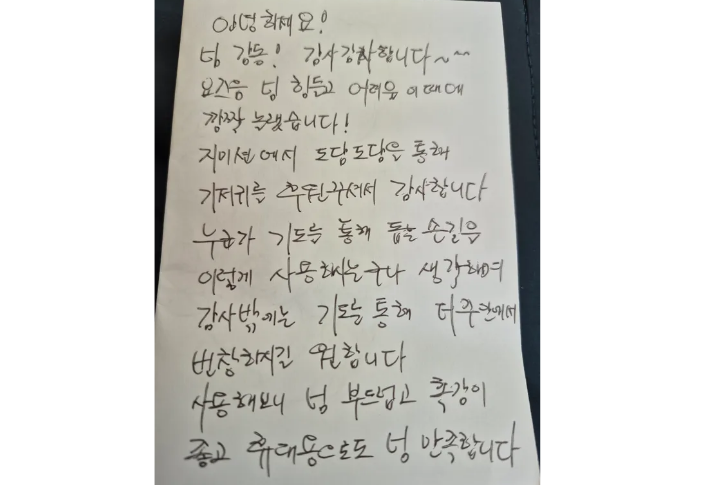 안녕하세요!
넘 감동! 감사감사합니다~~
요즈음 넘 힘들고 어려운 이때에
깜짝 놀랬습니다!
지미션에서 도담도담을 통해
기저귀를 후원해주셔서 감사합니다
누군가 기도를 통해 돕는 손길을
이렇게 사용하시는구나 생각하며
감사밖에는 기도를 통해 더
번창하지길 원합니다
사용해보니 넘 부드럽고 촉감이
좋고 휴대용으로도 넘 만족합니다